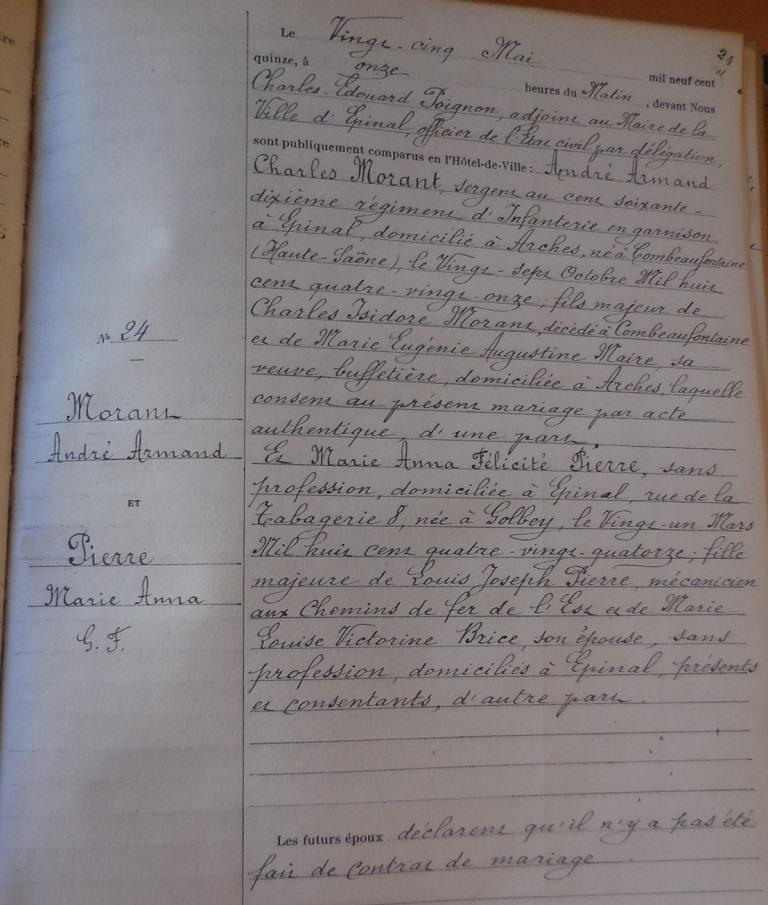 24
Le Vingt-cinq Mai mil neuf cent
quinze, à onze heures du Matin, devant Nous
Charles-Edouard Poignon, adjoint au Maire de la
Ville d'Epinal, officier de l'Etat civil par délégation,
sont publiquement comparus en l'Hôtel-de-Ville : André Armand
Charles Morant, sergent au cent soixante-
dixième régiment d'Infanterie en garnison
à Epinal, domicilié à Arches, né à Combeaufontaine
(Haute-Saône), le Vingt-sept Octobre Mil huit
cent quatre-vingt-onze; fils majeur de
Charles Isidore Morant, décédé à Combeaufontaine
et de Marie Eugénie Augustine Maire, sa
veuve, buffetière, domiciliée à Arches, laquelle
consent au présent mariage par acte
authentique, d'une part.
Et Marie Anna Félicité Pierre, sans
profession, domiciliée à Epinal, rue de la
Tabagerie 8, née à Golbey, le Vingt-un Mars
Mil huit cent quatre-vingt-quatorze; fille
majeure de Louis Joseph Pierre, mécanicien
aux Chemins de fer de l'Est et de Marie
Louise Victorine Brice, son épouse, sans
profession, domiciliés à Epinal, présents
et consentants, d'autre part.
Les futurs époux déclarent qu'il n'y a pas été
fait de contrat de mariage.
N° 24
Morant
André Armand
ET
Pierre
Marie Anna
G. F.